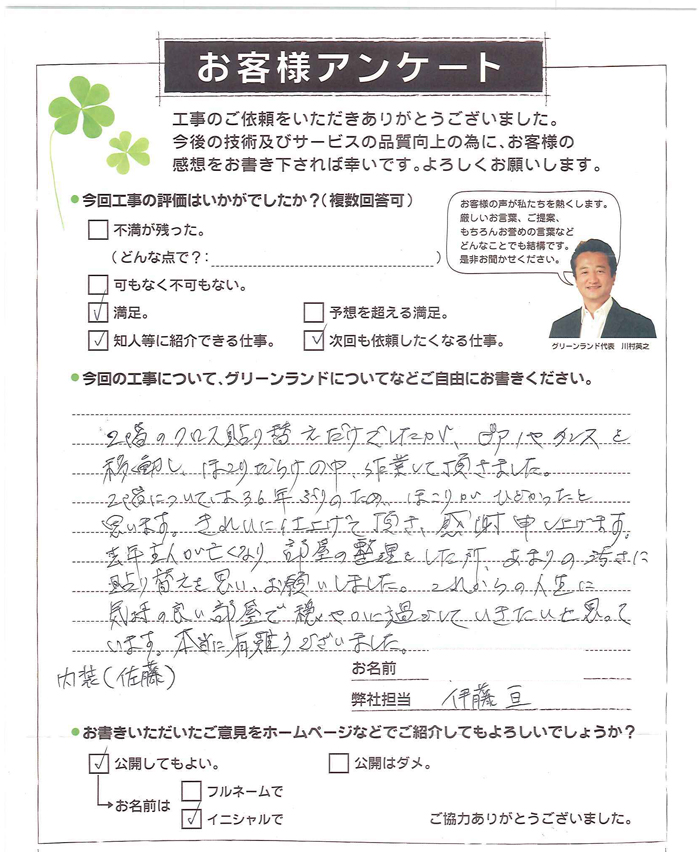 お客様アンケート
工事のご依頼をいただきありがとうございました。
今後の技術及びサービスの品質向上の為に、お客様の
感想をお書き下されば幸いです。よろしくお願いします。
今回工事の評価はいかがでしたか？（複数回答可）
不満が残った。
（どんな点で？：　）
可もなく不可もない。
満足。
予想を超える満足。
知人等に紹介できる仕事。
次回も依頼したくなる仕事。
お客様の声が私たちを熱くします。
厳しいお言葉、ご提案、
もちろんお誉めの言葉など
どんなことでも結構です。
是非お聞かせください。
グリーンランド代表　川村英之
今回の工事について、グリーンランドについてなどご自由にお書きください。
2階のクロス貼り替えだけでしたが、ピアノやタンスを
移動し、ほこりだらけの中、作業して頂きました。
2階については36年ぶりのため、ほこりがひどかったと
思います。きれいに仕上げて頂き、感謝申し上げます。
去年主人が亡くなり、部屋の整理をした所、あまりの汚さに
貼り替えを思い、お願いしました。これからの人生に
気持の良い部屋で穏やかに過がしていきたいと思って
います。本当に有難うございました。
内装（佐藤）
お名前
弊社担当　伊藤 亘
お書きいただいたご意見をホームページなどでご紹介してもよろしいでしょうか？
公開してもよい。
公開はダメ。
お名前は
フルネームで
イニシャルで
ご協力ありがとうございました。